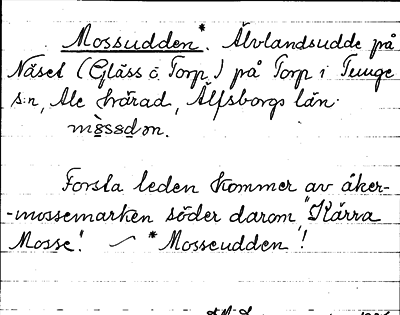 Mossudden*. Älvlandsudde på
Näset (Gläss o. Torp) på Torp i Tunge
s:n, Ale härad, Älfsborgs län.
mo̍ssdən.
Första leden kommer av åker-
-mossemarken söder darom "Kärra
Mosse". ~ *Mosseudden!